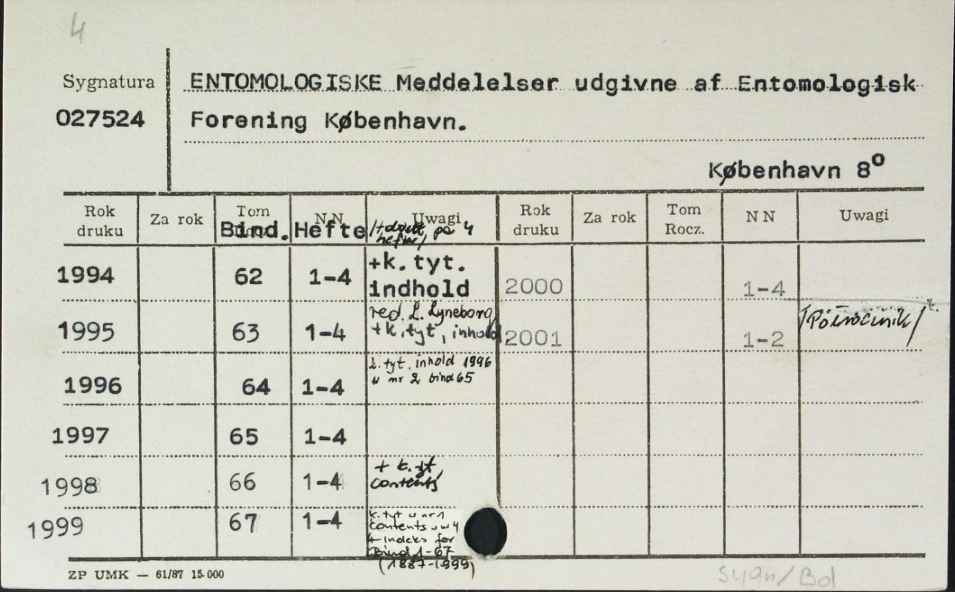 4
Sygnatura ENTOMOLOGISKE Meddelelser udgivne af Entomologisk
027524 Forening København.
København 8º
Rok druku Za rok Tom N N Uwagi Rok druku Za rok Tom Rocz. N N Uwagi
Bind. Hefte på 4
1994 62 1-4 +k.tyt. indhold 2000 1-4
1995 63 1-4 red. L. Lyneborg + k. tyt, inhold 2001 1-2 /Półrocznik/
1996 64 1-4 k. tyt. inhold 1996 w nr 2 bind 65
1997 65 1-4
1998 66 1-4 + k. tyt, contents
1999 67 1-4 k. tyt w nr 1 contents w 4 + indeks for Bind 1-67 (1887-1999)
ZP UMK — 61/87 15 000
sygn/Bd